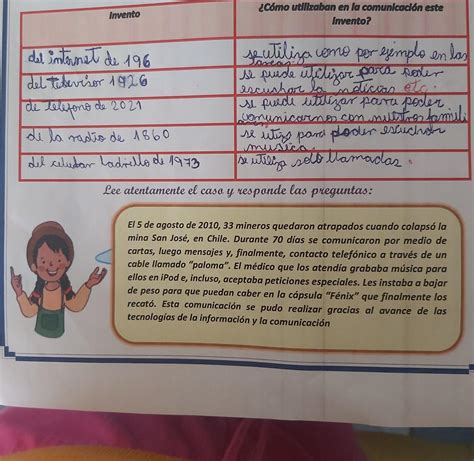 Invento
¿Cómo utilizaban en la comunicación este
invento?
del internet de 196
se utiliza como por ejemplo en las
tareas
del televisor 1926
se puede utilizar para poder
escuchar la noticias etc.
de telefono de 2021
se puede utilizar para poder
comunicarnos con nuestros famili
de la radio de 1860
se utizo para poder escuchar
musica.
del celular Ladrillo de 1973
se utiliza solo llamadas.
Lee atentamente el caso y responde las preguntas:
El 5 de agosto de 2010, 33 mineros quedaron atrapados cuando colapsó la
mina San José, en Chile. Durante 70 días se comunicaron por medio de
cartas, luego mensajes y, finalmente, contacto telefónico a través de un
cable llamado "paloma". El médico que los atendía grababa música para
ellos en iPod e, incluso, aceptaba peticiones especiales. Les instaba a bajar
de peso para que puedan caber en la cápsula "Fénix" que finalmente los
recató. Esta comunicación se pudo realizar gracias al avance de las
tecnologías de la información y la comunicación